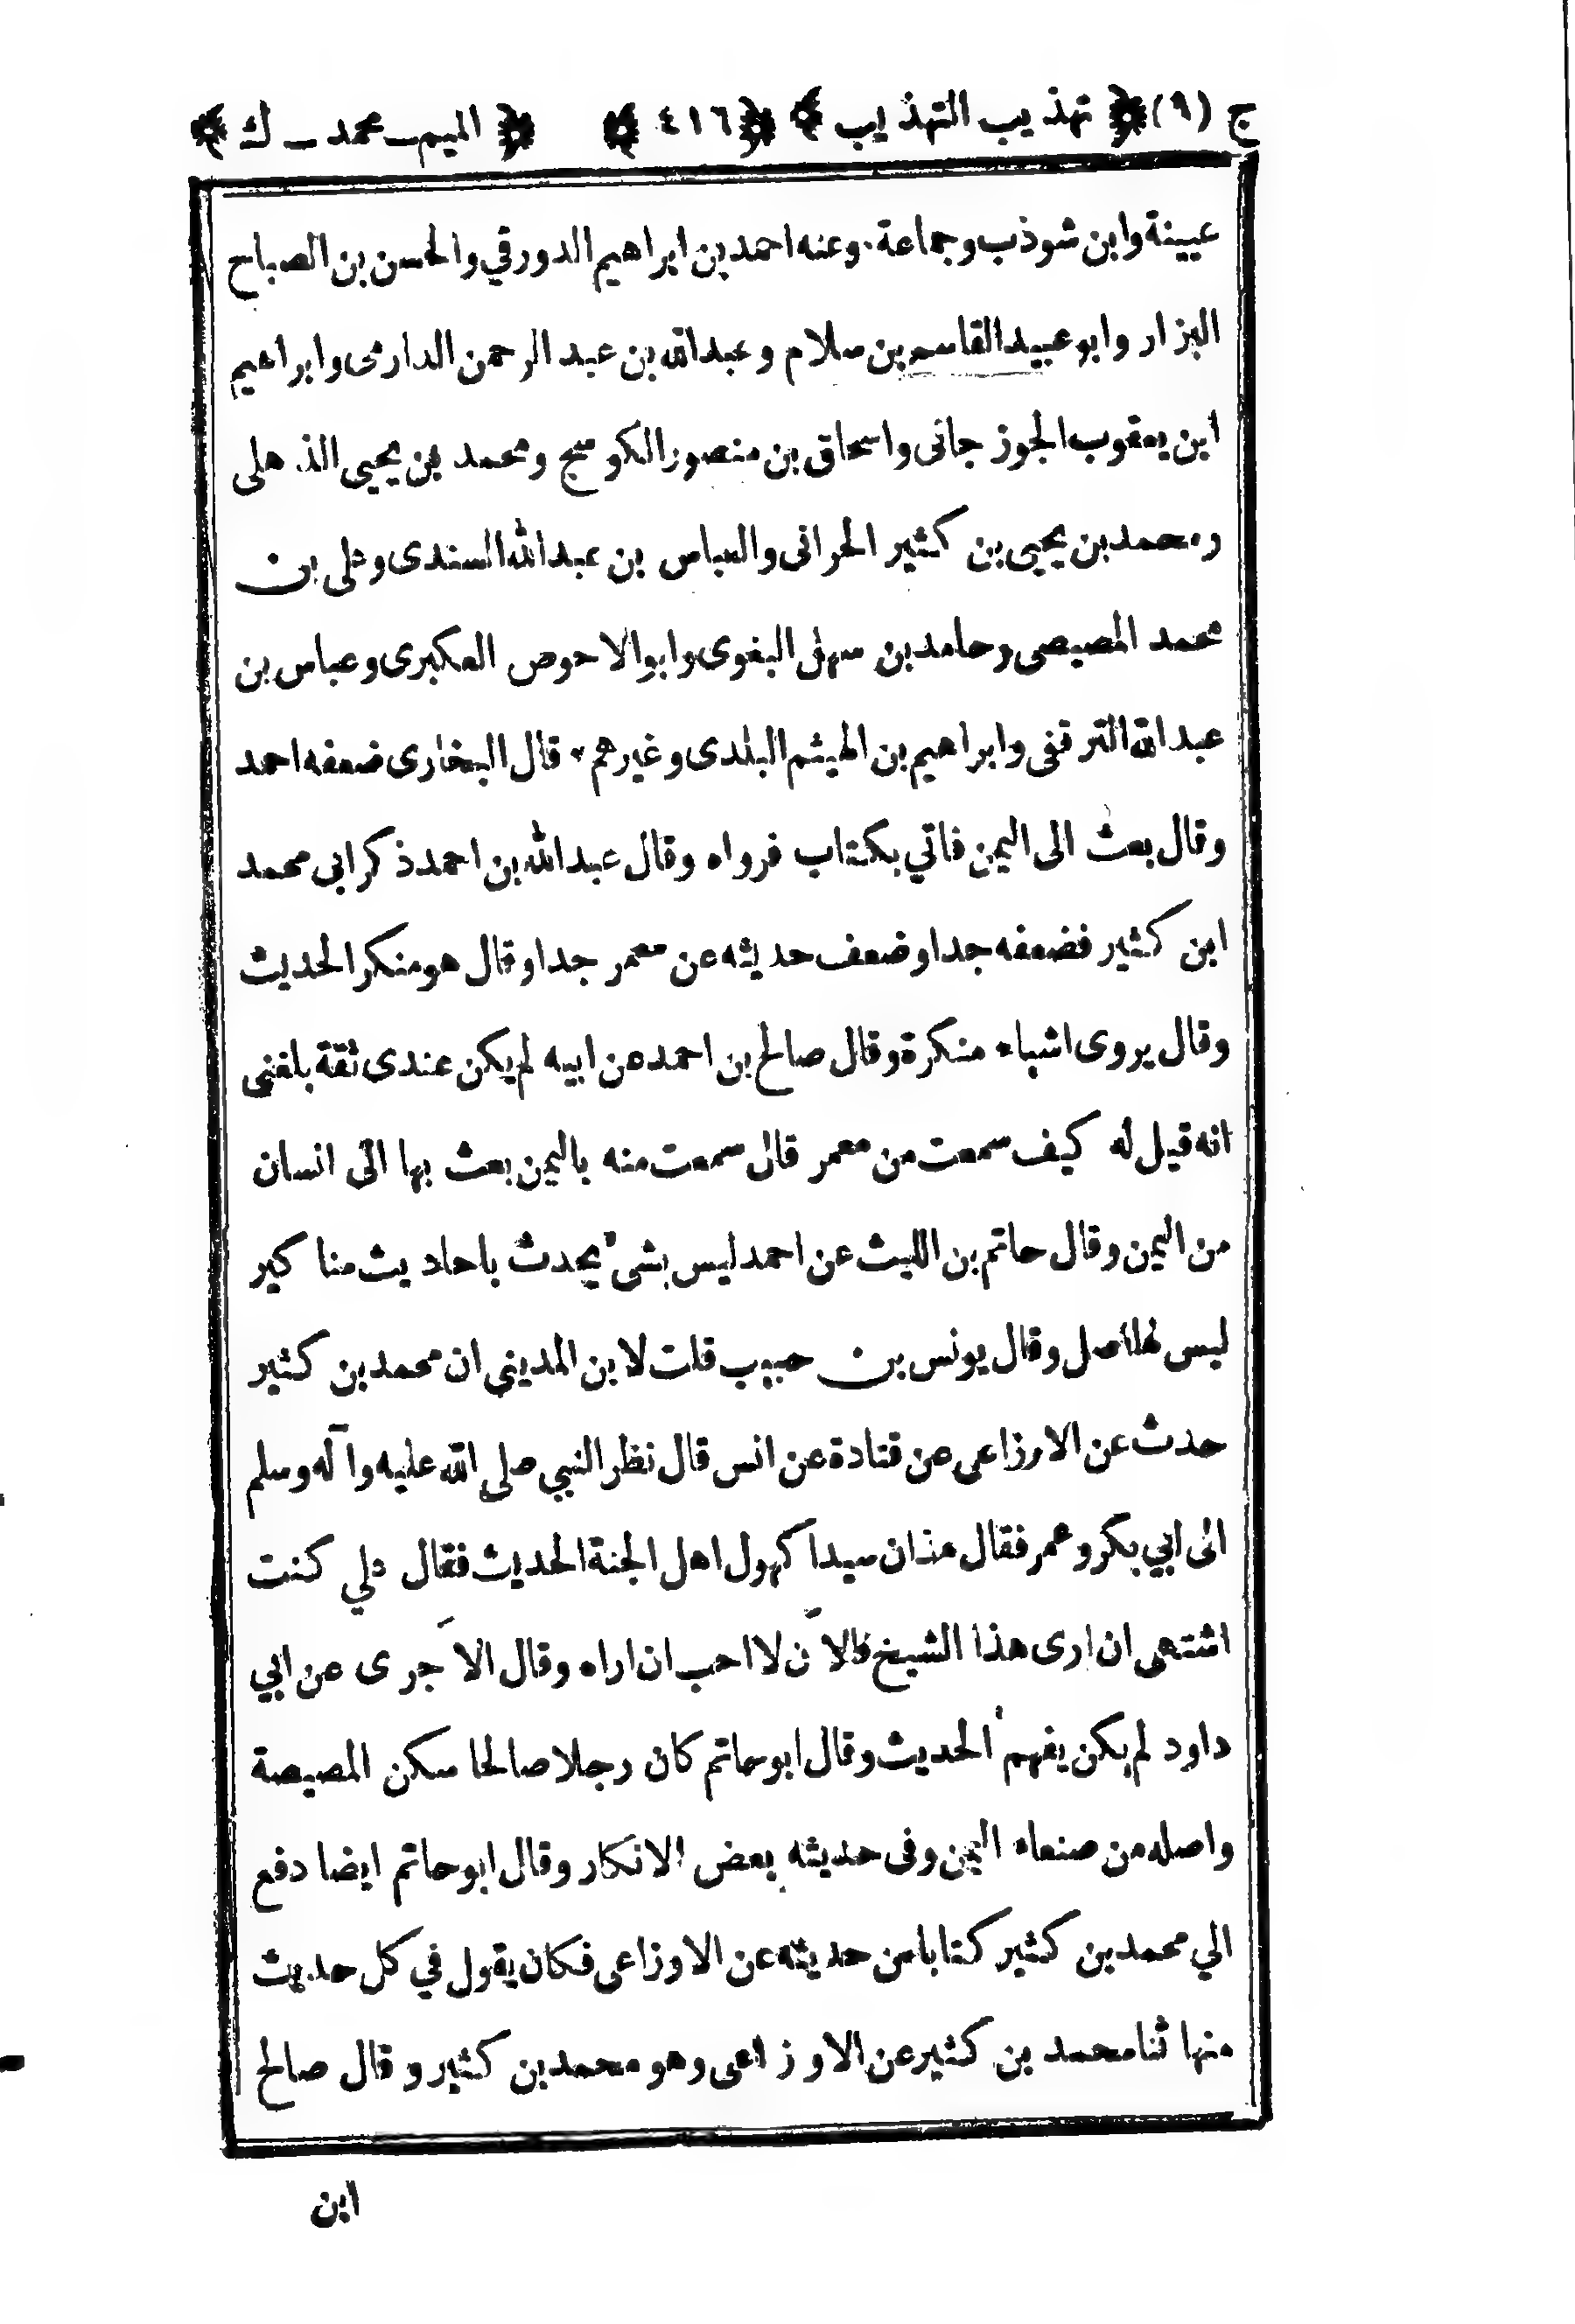 ج (٩) ﴿ تهذيب التهذيب ﴾ ﴿ ٤١٦ ﴾ ﴿ الميم ـ محمد ـ ك ﴾
عيينة وابن شوذب وجماعة . وعنه احمد بن ابراهيم الدورقي والحسن بن الصباح
البزار وابو عبيد القاسم بن سلام وعبد الله بن عبد الرحمن الدارمى وابراهيم
ابن يعقوب الجوزجانى واسحاق بن منصور الكوسج ومحمد بن يحيى الذهلى
ومحمد بن يحيى بن كثير الحرانى والعباس بن عبد الله السندى وعلى بن
محمد المصيصى وحامد بن سهل البغوى وابو الاحوص العكبرى وعباس بن
عبد الله الترقفى وابراهيم بن الهيثم البلدى وغيرهم * قال البخارى ضعفه احمد
وقال بعث الى اليمن فاتي بكتاب فرواه وقال عبد الله بن احمد ذكر ابى محمد
ابن كثير فضعفه جدا وضعف حديثه عن معمر جدا وقال هو منكر الحديث
وقال يروى اشياء منكرة وقال صالح بن احمد عن ابيه لم يكن عندى ثقة بلغنى
انه قيل له كيف سمعت من معمر قال سمعت منه باليمن بعث بها الى انسان
من اليمن وقال حاتم بن الليث عن احمد ليس بشىء يحدث باحاديث مناكير
ليس لها اصل وقال يونس بن حبيب قلت لابن المديني ان محمد بن كثير
حدث عن الاوزاعى عن قتادة عن انس قال نظر النبي صلى الله عليه وآله وسلم
الى ابي بكر وعمر فقال هذان سيدا كهول اهل الجنة الحديث فقال علي كنت
اشتهى ان ارى هذا الشيخ فالآن لا احب ان اراه وقال الآجرى عن ابي
داود لم يكن يفهم الحديث وقال ابو حاتم كان رجلا صالحا سكن المصيصة
واصله من صنعاء اليمن وفى حديثه بعض الانكار وقال ابو حاتم ايضا دفع
الي محمد بن كثير كتابا من حديثه عن الاوزاعى فكان يقول في كل حديث
منها ثنا محمد بن كثير عن الاوزاعى وهو محمد بن كثير وقال صالح
ابن